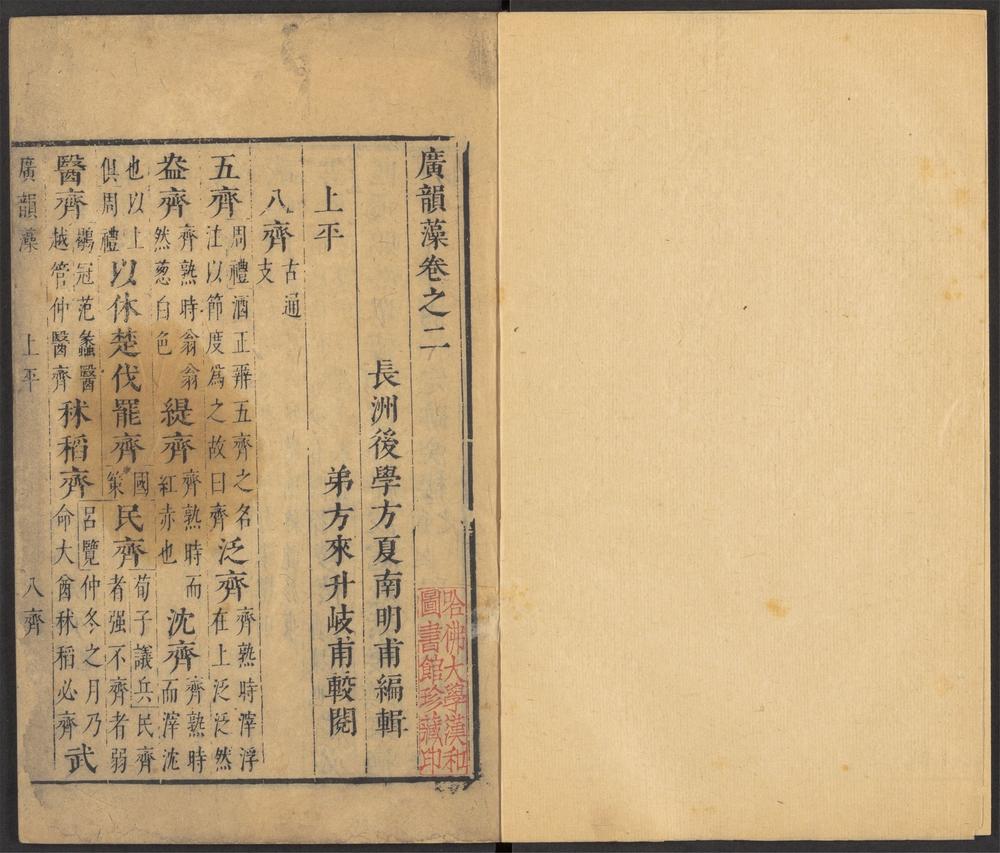 廣韻藻卷之二
哈佛大學漢和
圖書館珍藏印
長洲後學方夏南明甫編輯
上平　弟方來升岐甫較閱
八齊　古通支
五齊　周禮酒正辨五齊之名注以節度爲之故曰齊　泛齊　齊熟時滓浮在上泛泛然
盎齊　齊熟時翁翁然葱白色　緹齊　齊熟時而紅赤也　沈齊　齊熟時而滓沈
也以上俱周禮　以休楚伐罷齊　國策　民齊　荀子議兵民齊者强不齊者弱
醫齊　鶡冠范蠡醫越管仲醫齊　秫稻齊　呂覽仲冬之月乃命大酋秫稻必齊　武
廣韻藻　上平　八齊